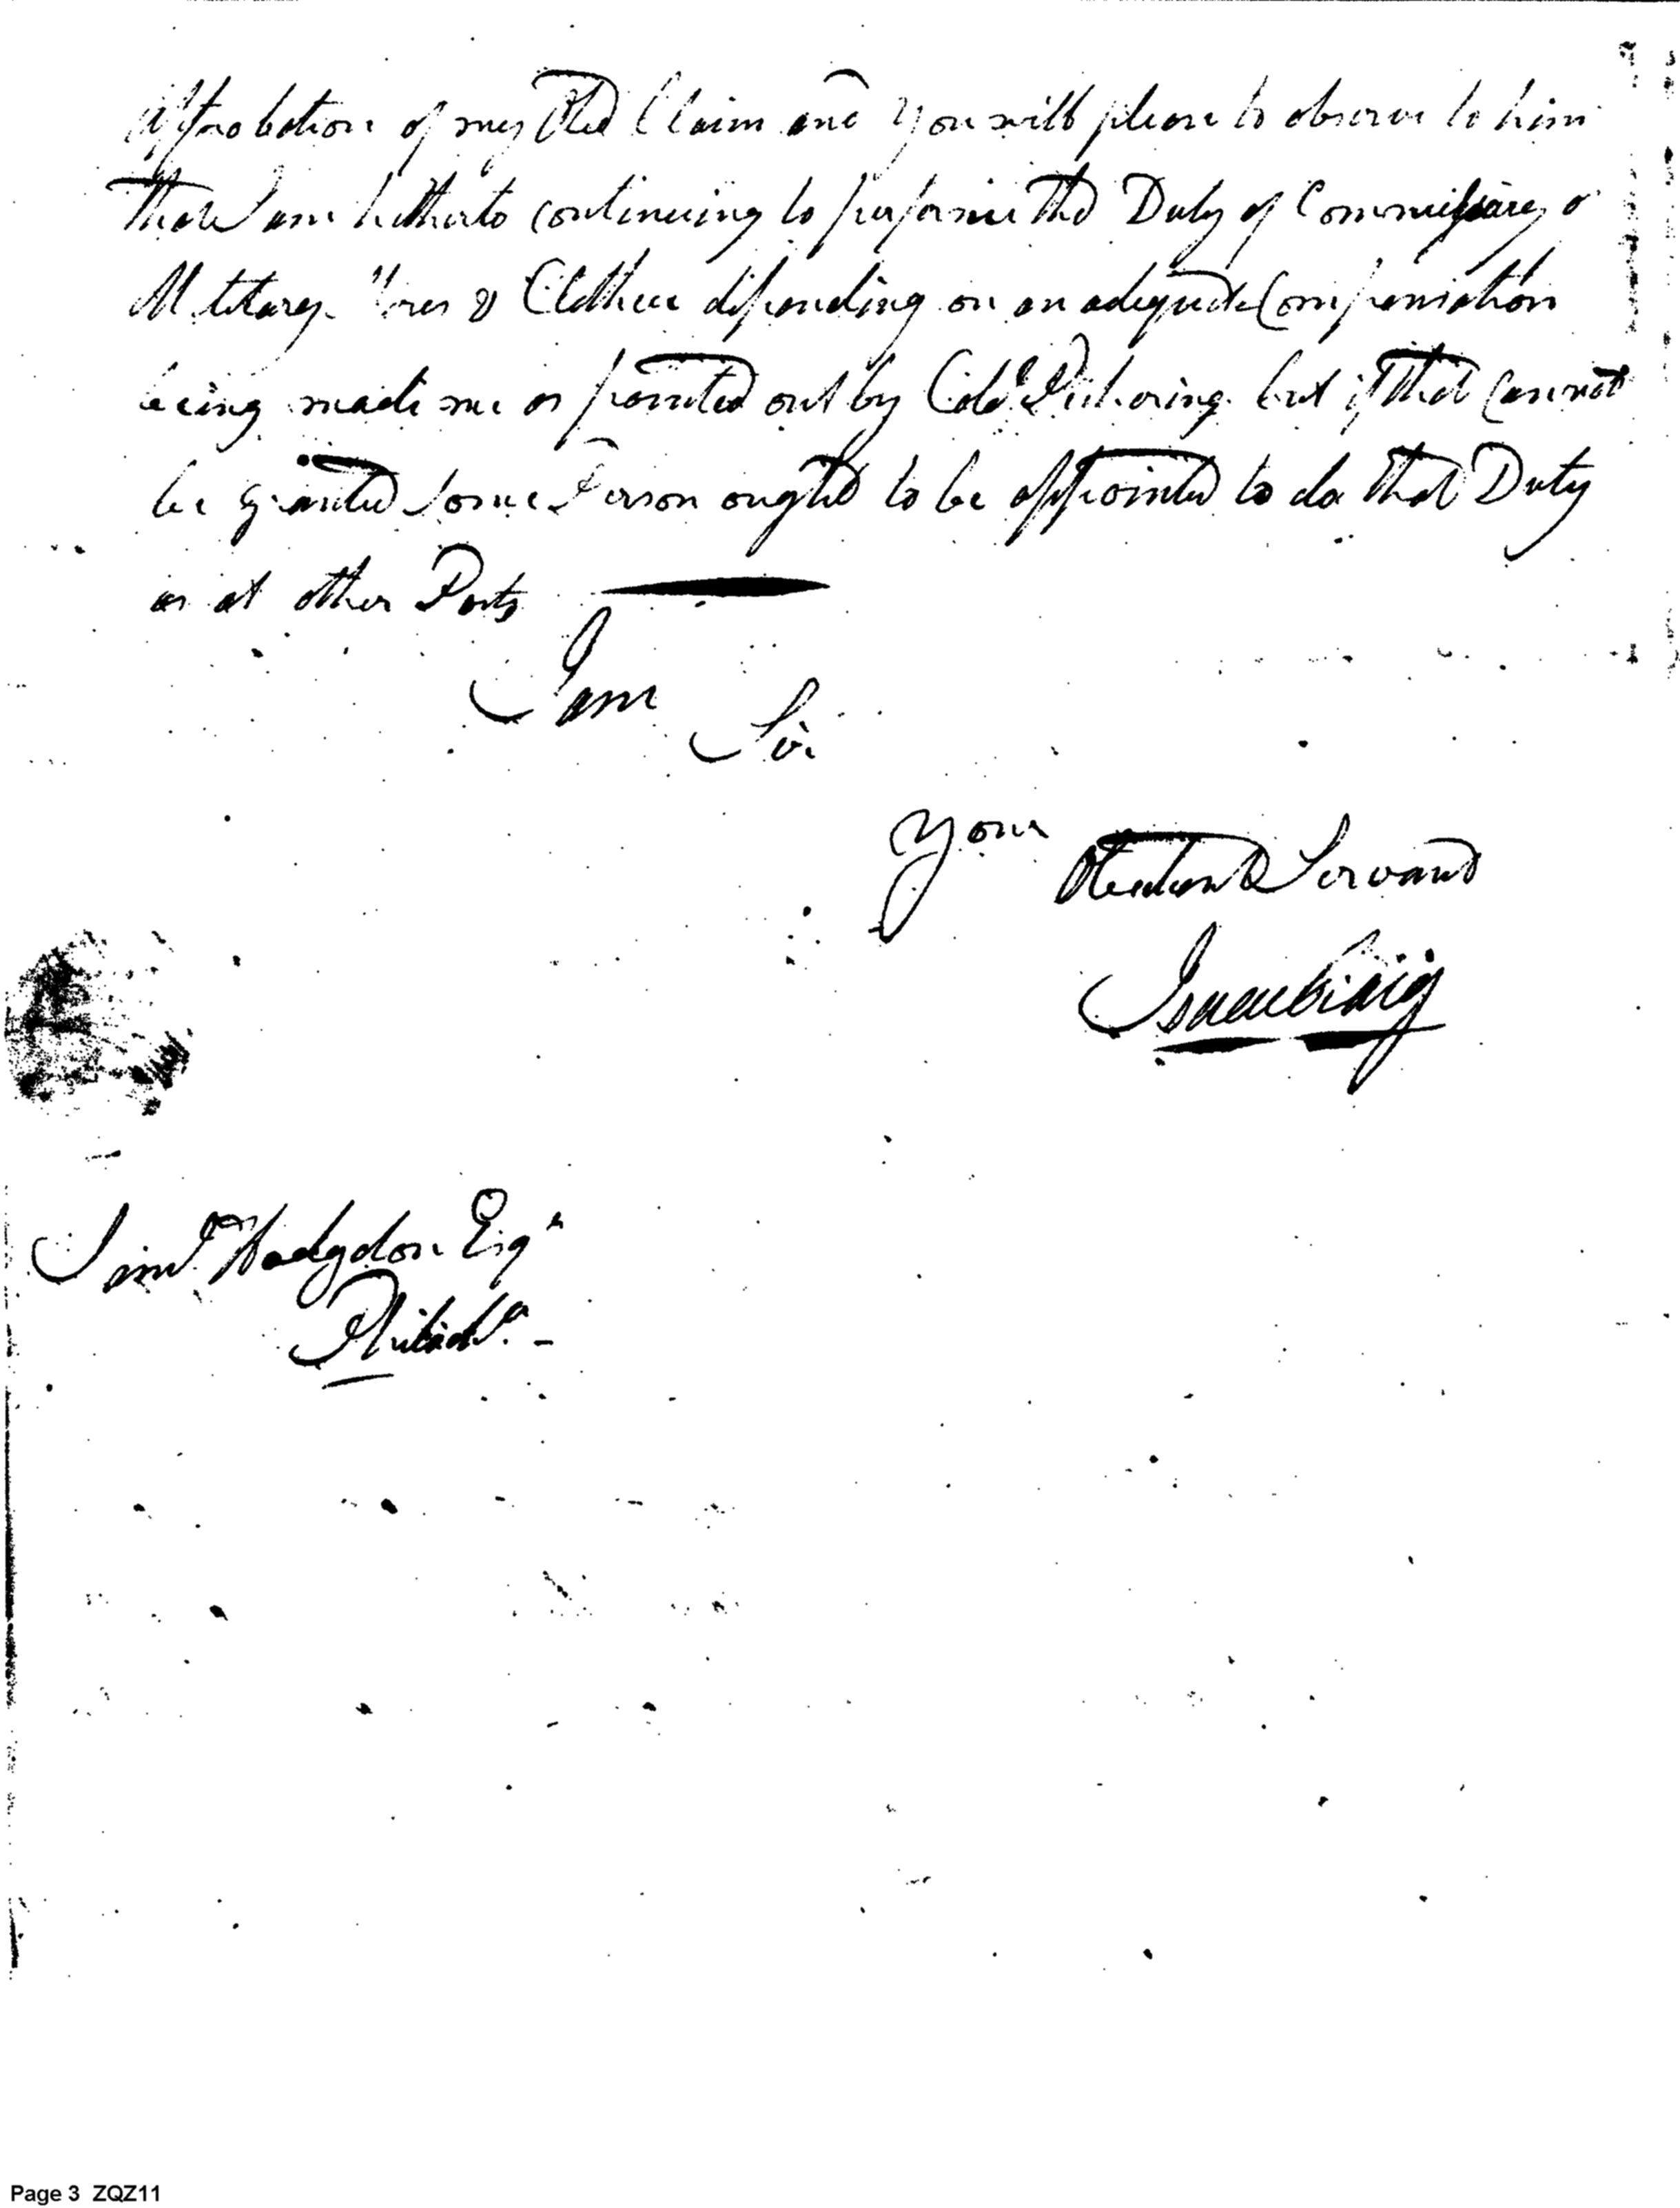 approbation of my Old Claim and you will please to observe to him
that I am hitherto continuing to perform the Duty of Commissary o
Military Stores & Clothier depending on an adequate Compensation
being made me or pointed out by Colo. Pickering but if that cannot
be granted some Person ought to be appointed to do that Duty
as at other Posts
I am
Sir
Your
Obedient Servant
Isaac Craig
Saml. Hodgdon Esqr
Philada. -
Page 3 ZQZ11